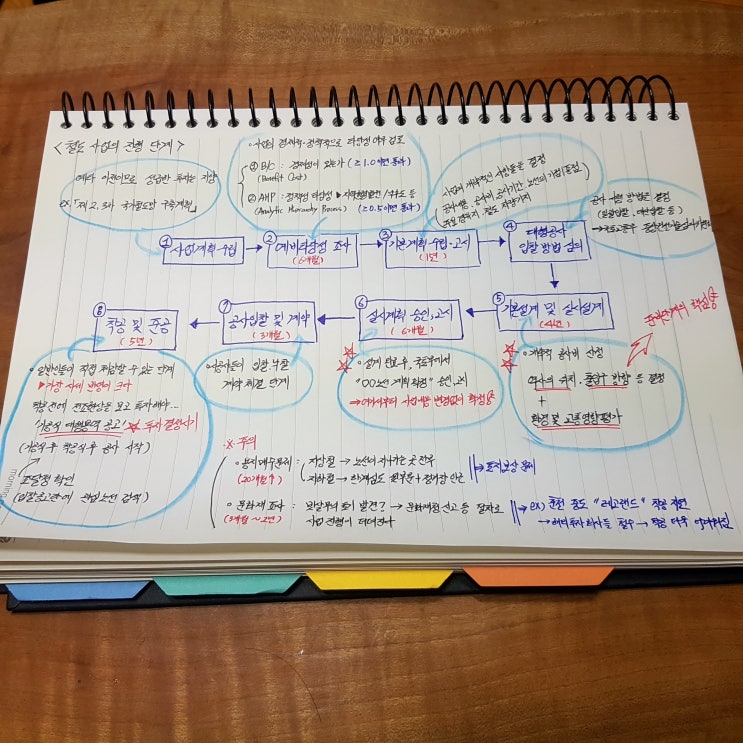 <철도 사업의 진행 단계>
예타 이전이므로 성급한 투자는 지양
ex. 「제 2, 3차 국가철도망 구축계획」
· 사업의 경제적·정책적으로 타당성 여부 검토
① B/C : 경제성이 있는가 (≥1.0 이면 통과)
(Benefit Cost)
② AHP : 정책성 타당성 ▶ 지역균형발전 / 낙후도 등
(Analytic Hierarchy Process) (≥0.5이면 통과)
사업의 개략적인 사항들을 결정
공사내용, 공사비, 공사기간, 노선의 기점/종점
① 사업계획 수립
② 예비타당성 조사
(6개월)
③ 기본계획 수립·고시
(1년)
④ 대형공사
입찰 방법 심의
공사 시행 방법을 결정
⑤ 기본설계 및 실시설계
(4년)
· 개략적 공사비 산정
역사의 위치, 출입구 방향 등 결정
+
환경 및 교통영향평가
⑥ 실시계획 승인, 고시
(6개월)
· 설계 완료후, 국토부에서
"OO노선 계획 확정" 승인, 고시
⇒ 여기서부터 사업에는 변경없이 확정성↑
⑦ 공사입찰 및 계약
(3개월)
· 건설사들이 입찰·낙찰
계약 체결 단계
⑧ 착공 및 준공
(5년)
· 일반인들이 직접 체감할 수 있는 단계
▶ 가장 시세 반영이 크다
착공 전에 전조현상을 보고 투자해야...
'기공식 대행용역 공고' ☆ 투자 결정시기
(기공식 후 착공식 후 공사 시작)
조달청 확인
(입찰공고란에 관심노선 검색)
※ 주의
· 용지 매수문제 : 지상철 → 노선이 지나가는 곳 전부
(20개월↑) 지하철 → 환기시설 + 정거장 인근
⇒ 토지보상 문제
· 문화재 조사 : 문화재청 신고 등 절차로
(3개월 ~ 2년) 사업 진행이 더뎌진다
ex) 춘천 중도 "레고랜드" 착공 지연
→ 해외투자 회사들 철수 → 착공 더욱 어려워짐